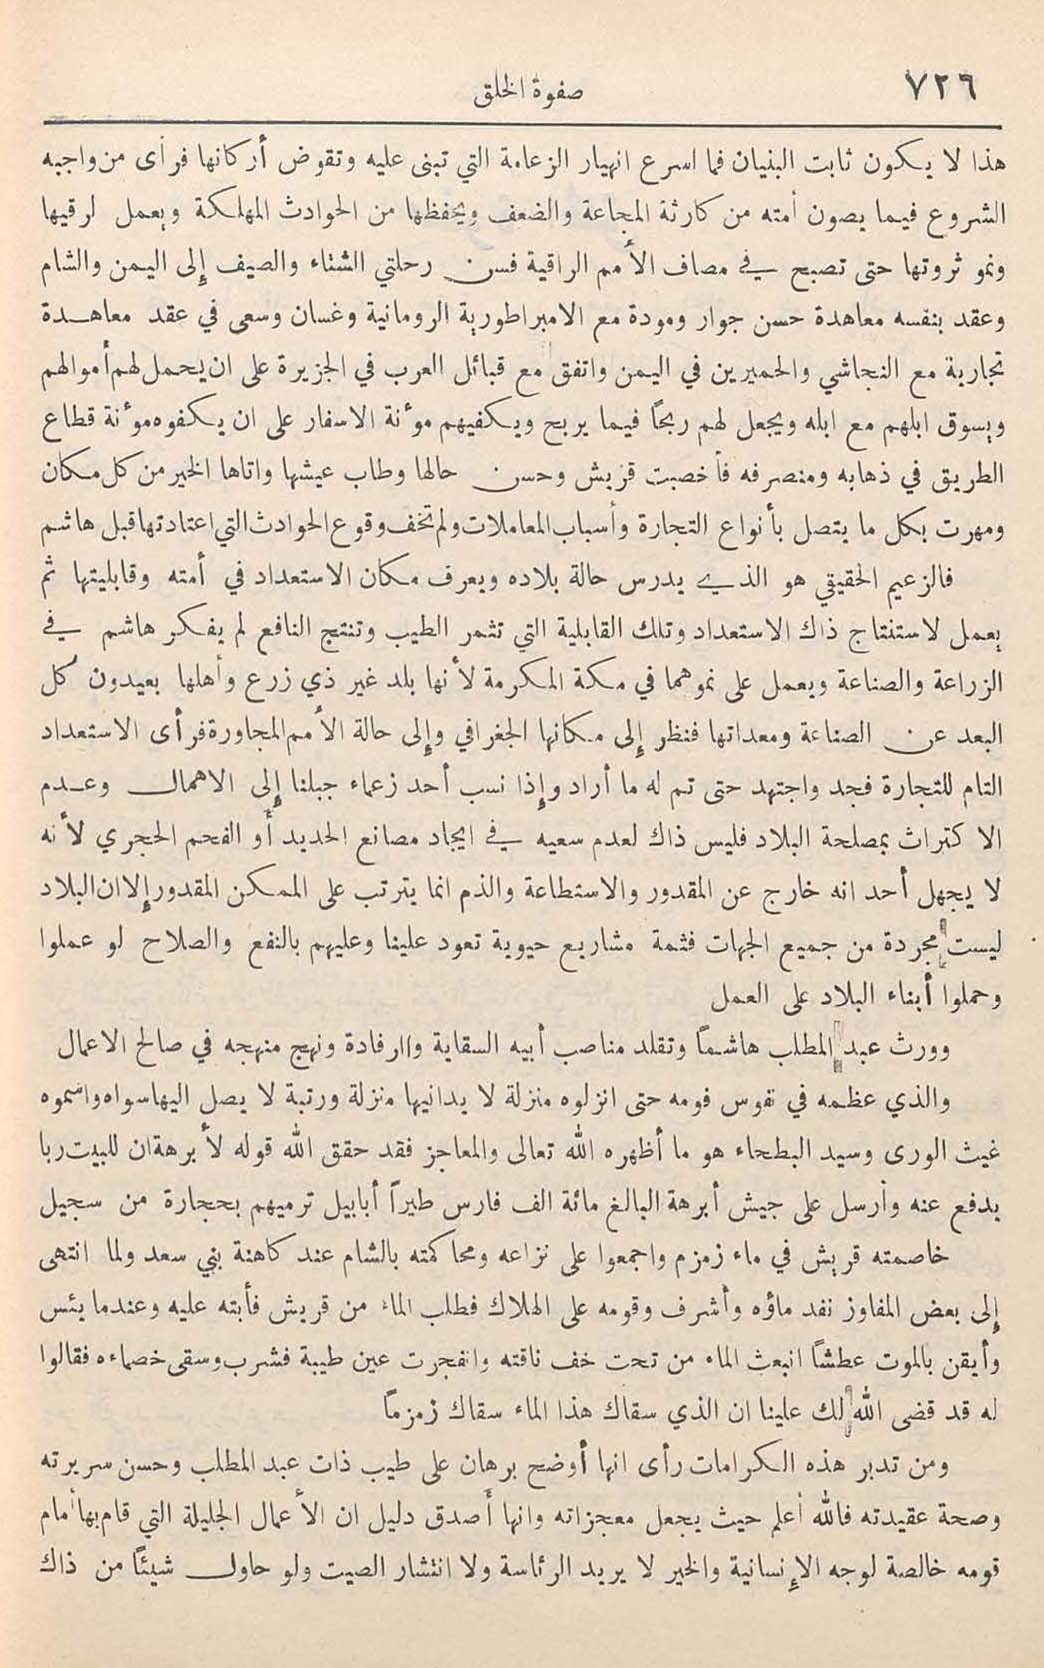 ٧٢٦
صفوة الخلق
هذا لا يكون ثابت البنيان فما اسرع انهيار الزعامة التي تبنى عليه وتقوض أركانها فرأى من واجبه
الشروع فيما يصون أمته من كارثة المجاعة والضعف ويحفظها من الحوادث المهلكة ويعمل لرقيها
ونمو ثروتها حتى تصبح في مصاف الأمم الراقية فسن رحلتي الشتاء والصيف إلى اليمن والشام
وعقد بنفسه معاهدة حسن جوار ومودة مع الامبراطورية الرومانية وغسان وسعى في عقد معاهدة
تجارية مع النجاشي والحميرين في اليمن واتفق مع قبائل العرب في الجزيرة على ان يحمل لهم أموالهم
ويسوق ابلهم مع ابله ويجعل لهم ربحاً فيما يربح ويكفيهم مؤنة الاسفار على ان يكفوه مؤنة قطاع
الطريق في ذهابه ومنصرفه فأخصبت قريش وحسن حالها وطاب عيشها واتاها الخير من كل مكان
ومهرت بكل ما يتصل بأنواع التجارة وأسباب المعاملات ولم تخف وقوع الحوادث التي اعتادتها قبل هاشم
فالزعيم الحقيقي هو الذي يدرس حالة بلاده ويعرف مكان الاستعداد في أمته وقابليتها ثم
يعمل لاستنتاج ذاك الاستعداد وتلك القابلية التي تثمر الطيب وتنتج النافع لم يفكر هاشم في
الزراعة والصناعة ويعمل على نموهما في مكة المكرمة لأنها بلد غير ذي زرع وأهلها بعيدون كل
البعد عن الصناعة ومعداتها فنظر إلى مكانها الجغرافي وإلى حالة الأمم المجاورة فرأى الاستعداد
التام للتجارة فجد واجتهد حتى تم له ما أراد وإذا نسب أحد زعماء جبلنا إلى الاهمال وعدم
الاكتراث بمصلحة البلاد فليس ذاك لعدم سعيه في ايجاد مصانع الحديد أو الفحم الحجري لأنه
لا يجهل أحد انه خارج عن المقدور والاستطاعة والذم انما يترتب على الممكن المقدور إلا ان البلاد
ليست مجردة من جميع الجهات فثمة مشاريع حيوية تعود علينا وعليهم بالنفع والصلاح لو عملوا
وحملوا أبناء البلاد على العمل
وورث عبد المطلب هاشماً وتقلد مناصب أبيه السقاية والرفادة ونهج منهجه في صالح الاعمال
والذي عظمه في نفوس قومه حتى انزلوه منزلة لا يدانيها منزلة ورتبة لا يصل اليها سواه واسموه
غيث الورى وسيد البطحاء هو ما أظهره الله تعالى والمعاجز فقد حقق الله قوله لأبرهة ان للبيت ربا
يدفع عنه وأرسل على جيش أبرهة البالغ مائة الف فارس طيراً أبابيل ترميهم بحجارة من سجيل
خاصمته قريش في ماء زمزم واجمعوا على نزاعه ومحاكمته بالشام عند كاهنة بني سعد ولما انتهى
إلى بعض المفاوز نفد ماؤه وأشرف وقومه على الهلاك فطلب الماء من قريش فأبته عليه وعندما يئس
وأيقن بالموت عطشاً انبعث الماء من تحت خف ناقته وانفجرت عين طيبة فشرب وسقى خصماءه فقالوا
له قد قضى الله لك علينا ان الذي سقاك هذا الماء سقاك زمزماً
ومن تدبر هذه الكرامات رأى انها أوضح برهان على طيب ذات عبد المطلب وحسن سريرته
وصحة عقيدته فالله أعلم حيث يجعل معجزاته وانها أصدق دليل ان الأعمال الجليلة التي قام بها أمام
قومه خالصة لوجه الإنسانية والخير لا يريد الرئاسة ولا انتشار الصيت ولو حاول شيئاً من ذاك